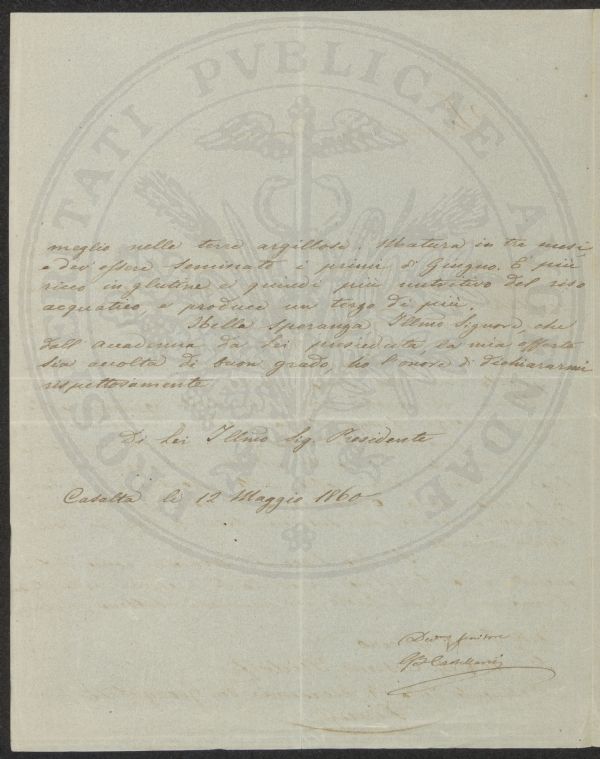 PROSPERITATI PVBLICAE AVGENDAE
meglio nelle terre argillose. Matura in tre mesi,
e dev'essere seminato i primi di Giugno. È più
ricco in glutine e quindi più nutritivo del riso
acquatico, e produce un terzo di più.
Nella Speranza Illmo Signore, che
dall'Accademia da Lei presieduta, la mia offerta
sia accolta di buon grado, ho l'onore di dichiararmi
rispettosamente
Di Lei Illmo Sig. Presidente
Casalta li 12 Maggio 1860
GB Castellani